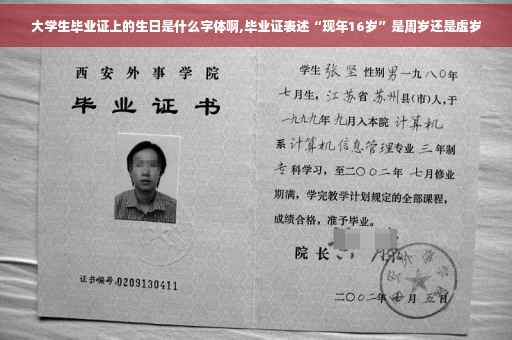 大学生毕业证上的生日是什么字体啊,毕业证表述“现年16岁”是周岁还是虚岁
西安外事学院
毕业证书
证书编号:0209130411
学生张坚性别男一九八〇年
七月生,江苏省苏州县(市)人,于
一九九九年九月入本院计算机
系计算机信息管理专业三年制
专科学习,至二〇〇二年七月修业
期满,学完教学计划规定的全部课程,
成绩合格,准予毕业。
院长
二〇〇二年 月五日